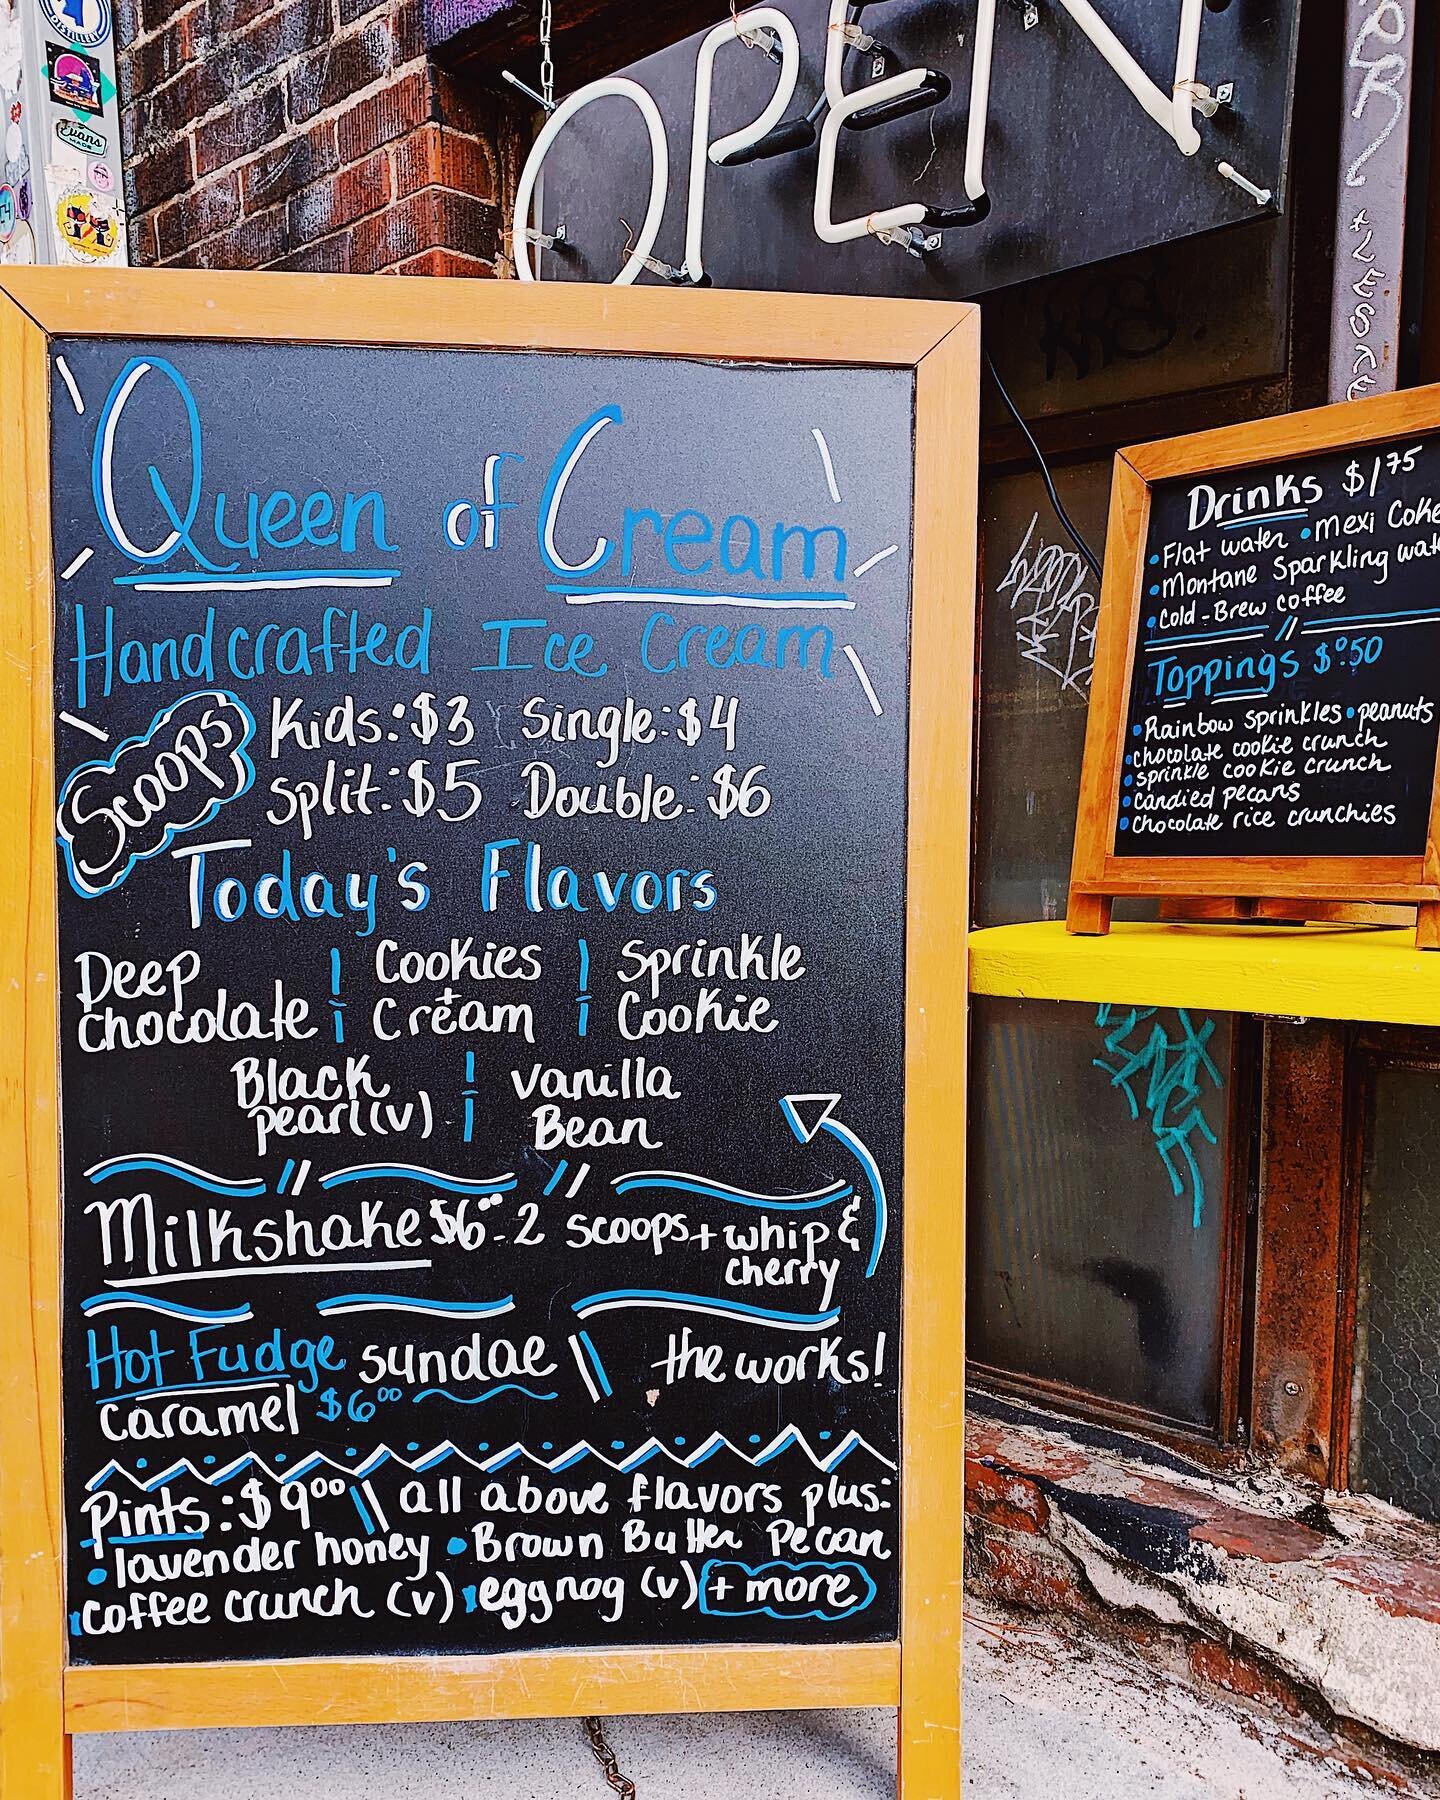 DISTILLERY
Evans
OPEN
Queen of Cream
Handcrafted Ice Cream
Scoops
Kids: $3 Single: $4
Split: $5 Double: $6
Today's Flavors
Deep Chocolate
Cookies + Cream
Sprinkle Cookie
Black pearl (v)
Vanilla Bean
Milkshake $6.00 - 2 scoops + whip & cherry
Hot Fudge sundae \\ the works!
Caramel $6.00
Pints: $9.00 \\ all above flavors plus:
• lavender honey • Brown Butter Pecan
• coffee crunch (v) • eggnog (v) + more
Drinks $1.75
• Flat water • Mexi Coke
• Montane Sparkling wat
• Cold-Brew coffee
Toppings $0.50
• Rainbow sprinkles • peanuts
• chocolate cookie crunch
• sprinkle cookie crunch
• candied pecans
• Chocolate rice crunchies